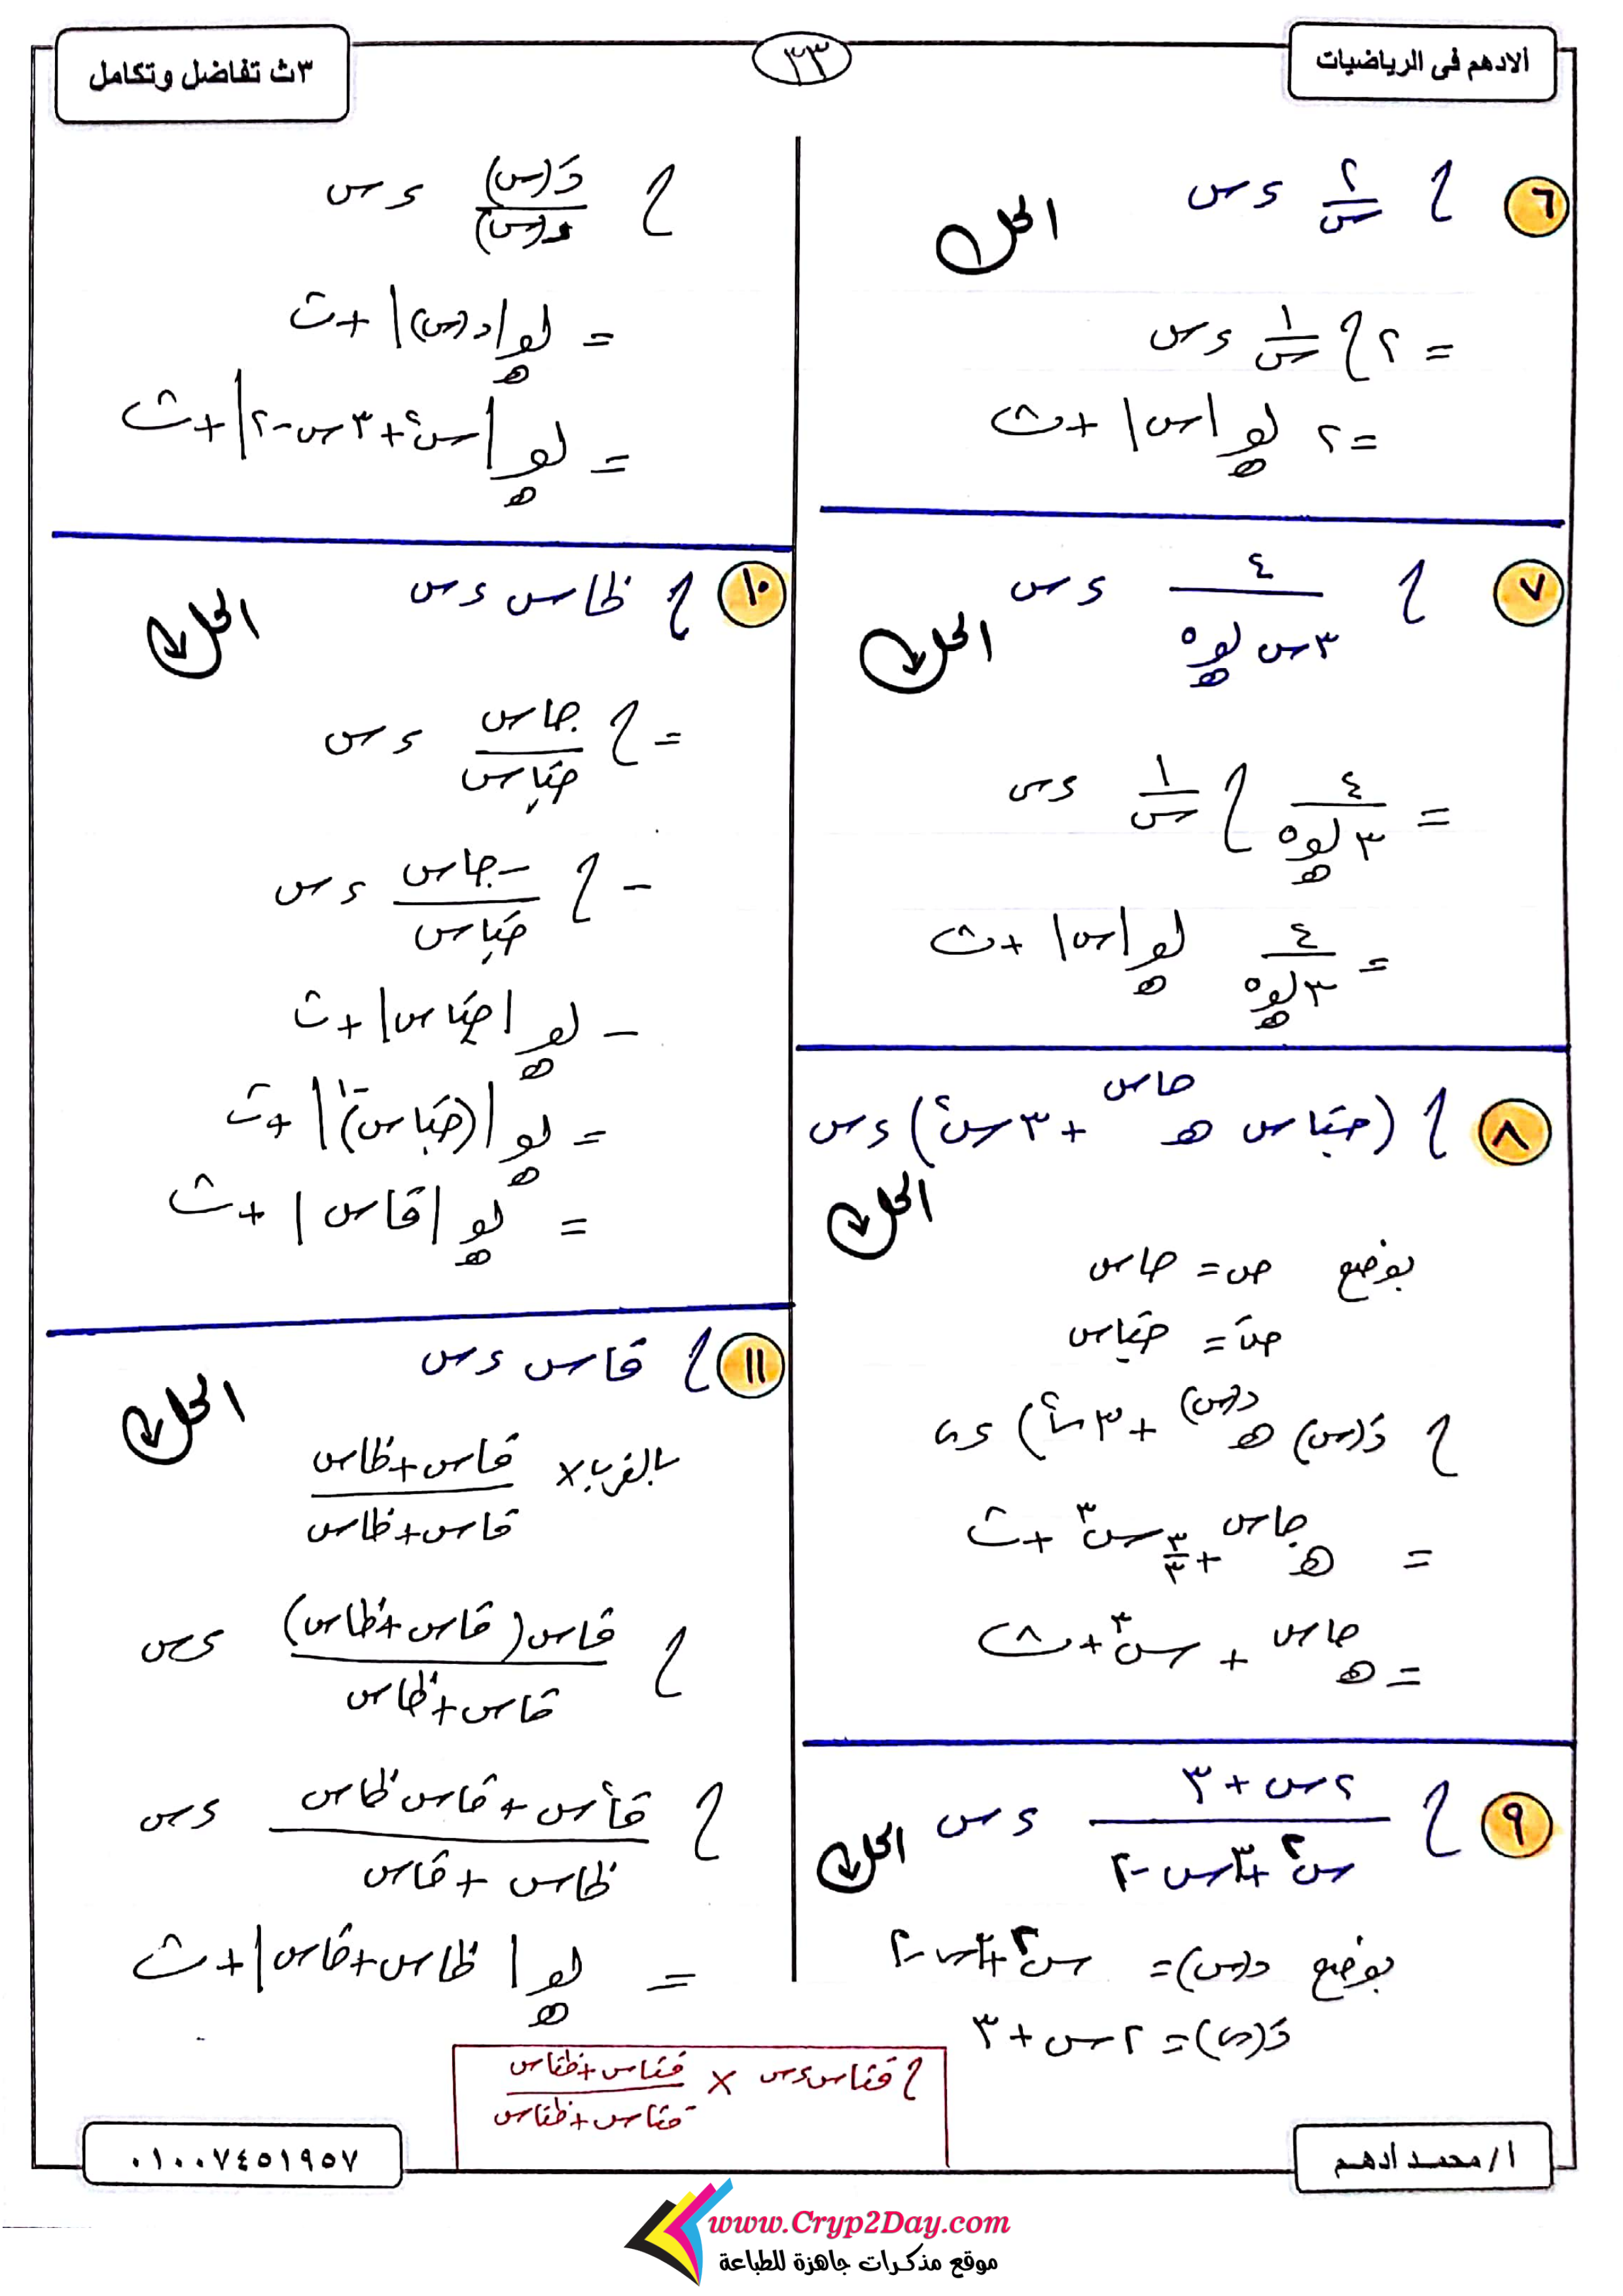 الادهم فى الرياضيات
٣٣
٣ث تفاضل وتكامل
٦ ∫ ٢/س ء س
الحل
= ٢ ∫ ١/س ء س
= ٢ لو_ه |س| + ث
٧ ∫ ٤/(٣س لو_ه ٥) ء س
الحل
= ٤/(٣ لو_ه ٥) ∫ ١/س ء س
= ٤/(٣ لو_ه ٥) لو_ه |س| + ث
٨ ∫ (جتاس ه^جاس + ٣س^٢) ء س
الحل
بوضع ص = جاس
صَ = جتاس
∫ دَ(س) ه^د(س) + ٣س^٢) ء س
= ه^جاس + ٣/٣ س^٣ + ث
= ه^جاس + س^٣ + ث
٩ ∫ (٢س + ٣)/(س^٢ + ٣س - ٢) ء س
الحل
بوضع د(س) = س^٢ + ٣س - ٢
دَ(س) = ٢س + ٣
∫ دَ(س)/د(س) ء س
= لو_ه |د(س)| + ث
= لو_ه |س^٢ + ٣س - ٢| + ث
١٠ ∫ ظاس ء س
الحل
= ∫ جاس/جتاس ء س
- ∫ -جاس/جتاس ء س
- لو_ه |جتاس| + ث
= لو_ه |(جتاس)^-١| + ث
= لو_ه |قاس| + ث
١١ ∫ قاس ء س
الحل
بالضرب × (قاس + ظاس)/(قاس + ظاس)
∫ قاس(قاس + ظاس)/(قاس + ظاس) ء س
∫ (قا^٢س + قاس ظاس)/(ظاس + قاس) ء س
= لو_ه |ظاس + قاس| + ث
∫ قتاس ء س × (قتاس + ظتاس)/(قتاس + ظتاس)
أ/محمد ادهم
٠١٠٠٧٤٥١٩٥٧
www.Cryp2Day.com
موقع مذكرات جاهزة للطباعة